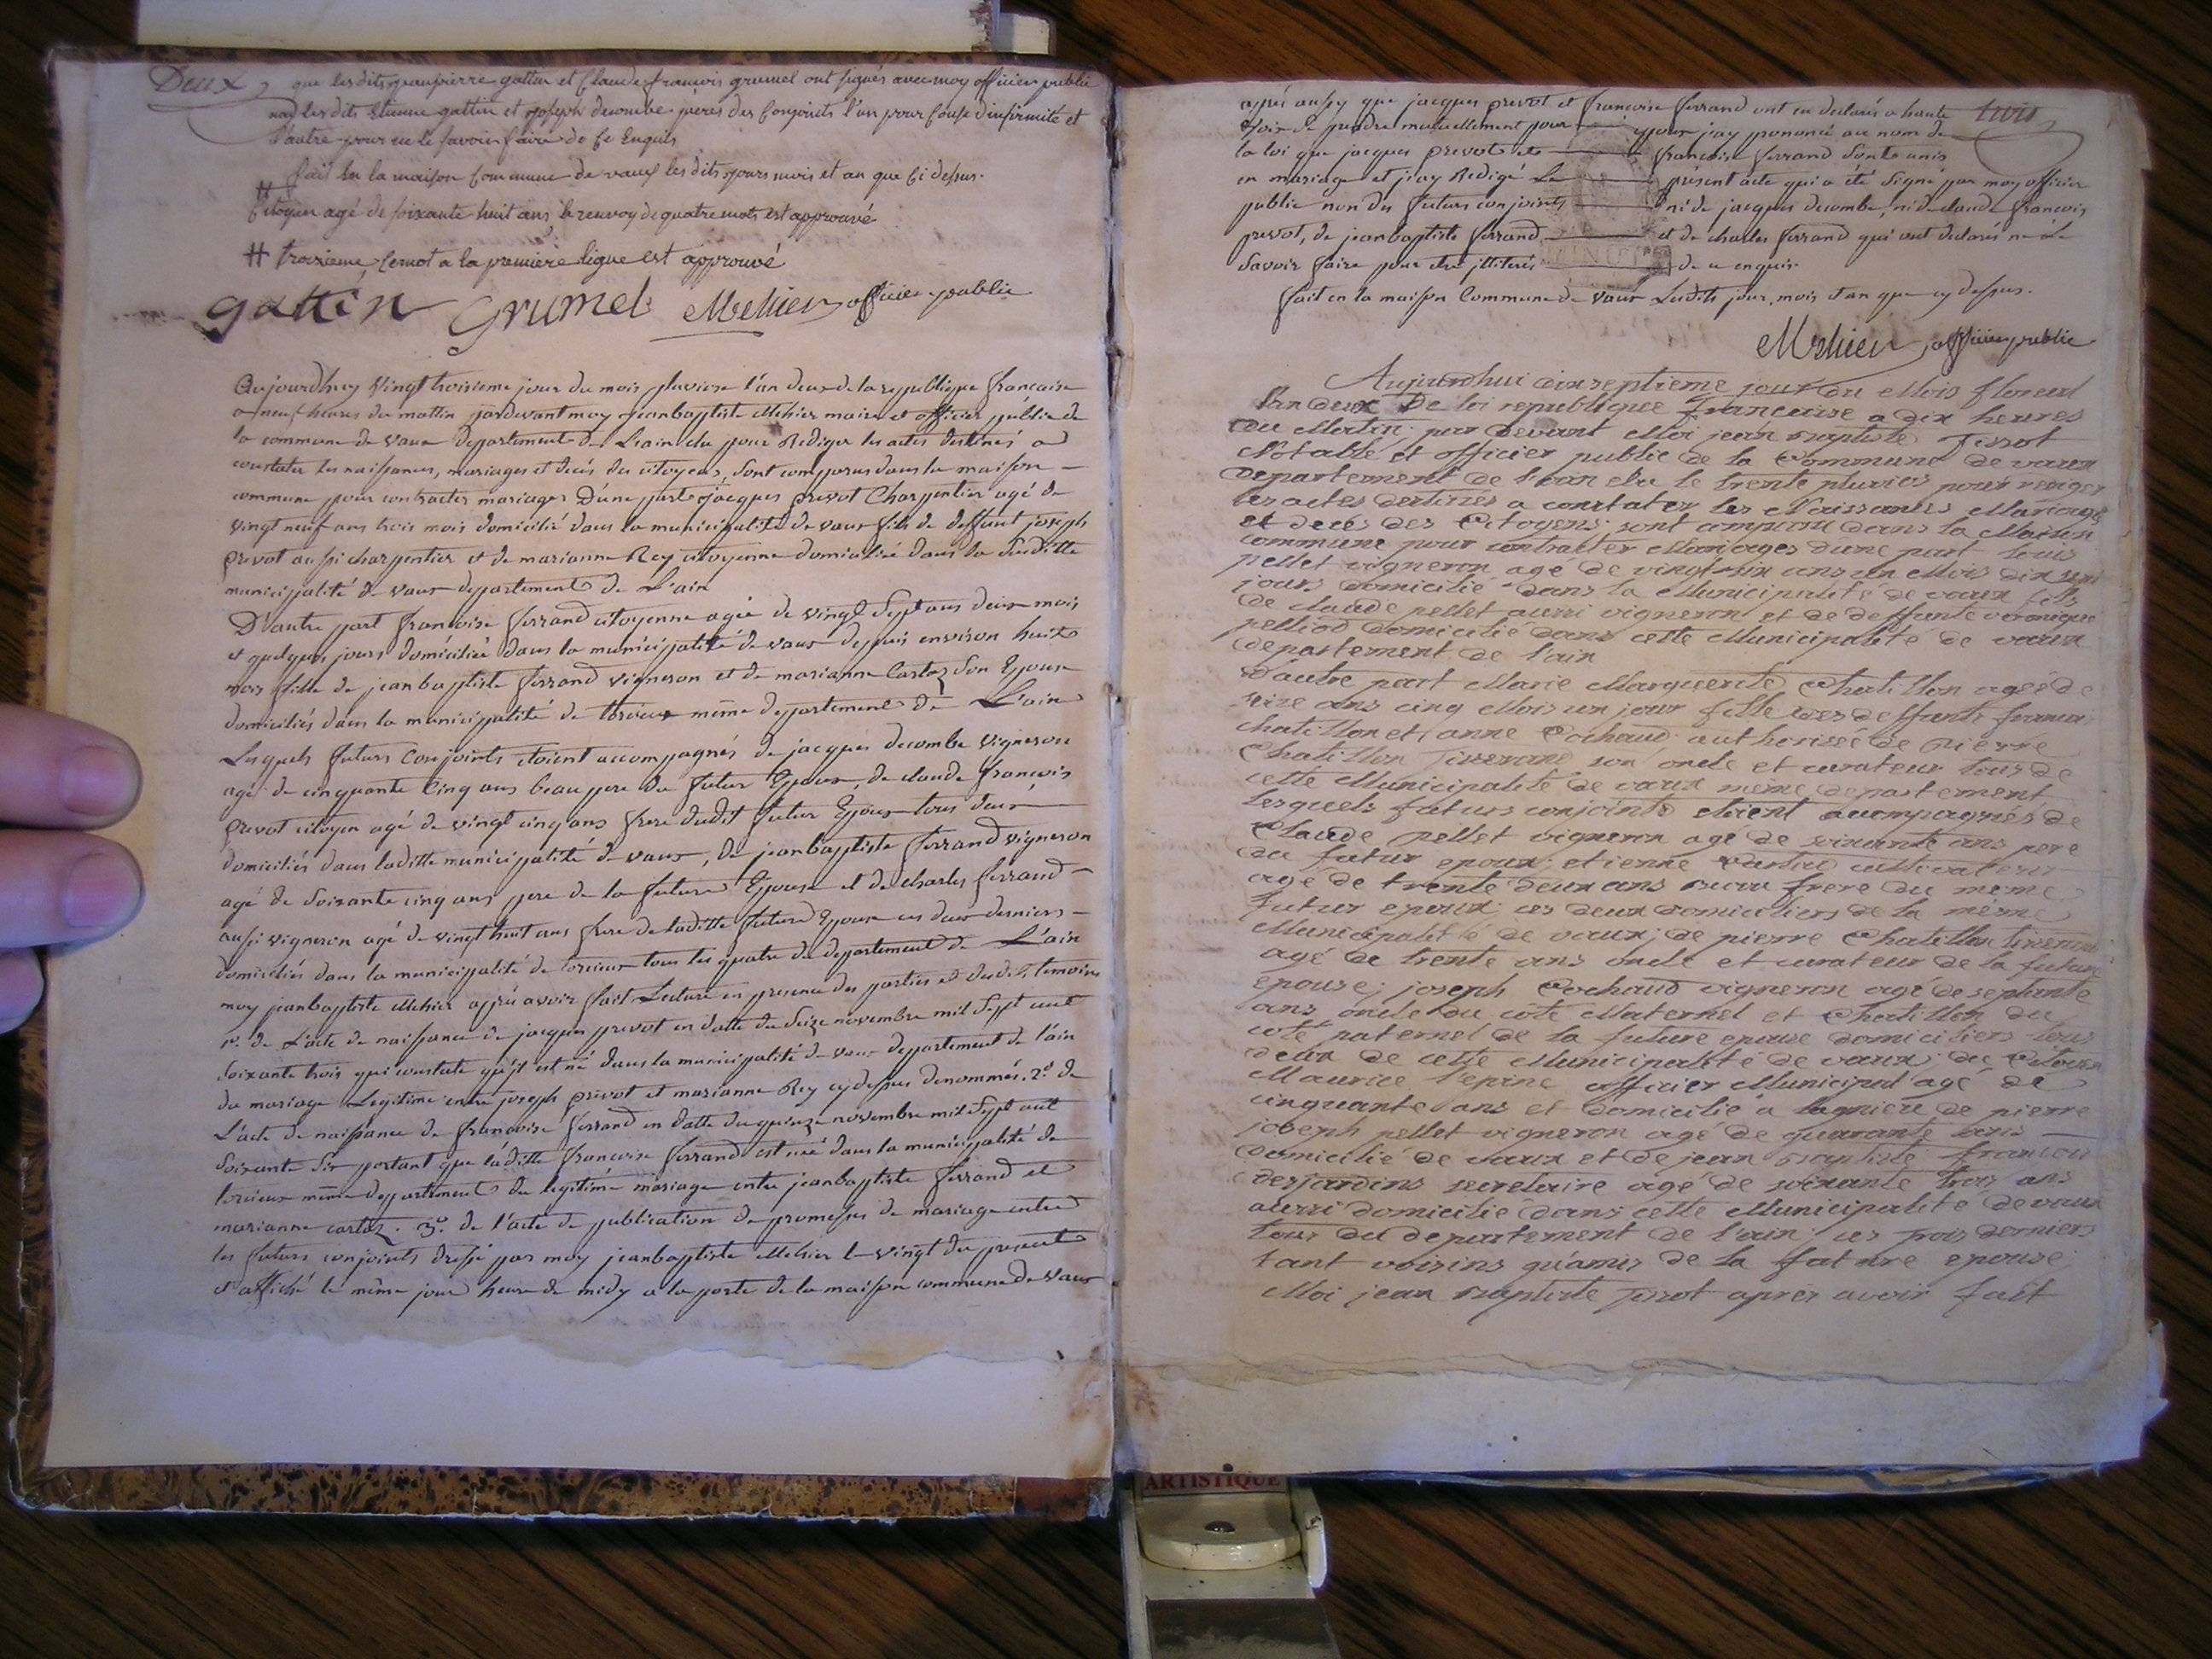 Deux
que les dits jeanpierre gattin et Claude françois grumel ont signés avec moy officier public
non les dits Etienne gattin et joseph decombe peres des Conjoints l'un pour Cause d'infirmité et
l'autre pour ne le savoir faire de Ce Enquis
fait En la maison Commune de vaux les dits jours mois et an que Ci dessus.
# Citoyen agé de soixante huit ans le renvoy de quatre mots est approuvé
# troisieme Lemot a la premiere ligue est approuvé
gattin Grumel Mehier officier public
Aujourdhuy Vingt troisieme jour du mois pluviose l'an deux de la republique francaise
a neuf heures du mattin pardevant moy jeanbaptiste Mehier maire et officier public de
la commune de vaux departement de L'ain elu pour Rediger les actes destinés a
constater les naissances, mariages et decés des citoyens, sont comparus dans la maison
commune pour contracter mariages D'une part jacques prevot Charpentier agé de
vingt neuf ans trois mois domicilié dans la municipalité de vaux fils de deffunt joseph
prevot aussi charpentier et de marianne Rey citoyenne domiciliée dans la susditte
municipalité de vaux departement de L'ain
D'autre part francoise ferrand citoyenne agée de vingt Sept ans deux mois
et quelques jours domiciliée dans la municipalité de vaux depuis environ huit
mois fille de jeanbaptiste ferrand vigneron et de marianne Cartoz son Epouse
domiciliés dans la municipalité de torcieux même departement de L'ain
Lesquels futurs Conjoints etoient accompagnés de jacques decombe vigneron
agé de cinquante Cinq ans beau pere du futur Epoux, de claude francois
prevot citoyen agé de vingt cinq ans frere dudit futur Epoux tous deux
domiciliés dans laditte municipalité de vaux, de jeanbaptiste ferrand vigneron
agé de Soixante cinq ans pere de la future Epouse et de charles ferrand
aussi vigneron agé de vingt huit ans frere de laditte future Epouse ces deux derniers
domiciliés dans la municipalité de torcieux tous les quatre du departement de L'ain
moy jeanbaptiste Mehier aprés avoir fait Lecture en presence des parties et desdits temoins
1º. de L'acte de naissance de jacques prevot en datte du Seize novembre mil Sept cent
Soixante trois qui constate qu'il est né dans la municipalité de vaux departement de l'ain
du mariage Legitime entre joseph prevot et marianne Rey cy dessus denommés. 2º. de
L'acte de naissance de francoise ferrand en datte du quinze novembre mil Sept cent
Soixante Six portant que laditte francoise ferrand est née dans la municipalité de
torcieux même departement du legitime mariage entre jeanbaptiste ferrand et
marianne cartoz. 3º. de l'acte de publication de promesses de mariage entre
les futurs conjoints dressé par moy jeanbaptiste Mehier le vingt du present
et affiché le même jour heure de midy a la porte de la maison commune de vaux
trois
aprés aussy que jacques prevot et francoise ferrand ont eu declarés a haute
voix se prendre mutuellement pour Epoux j'ay prononcé au nom de
la loi que jacques prevot et francoise ferrand sont unis
en mariage et j'ay Redigé Le présent acte qui a été Signé par moy officier
public non des futurs conjoints ni de jacques decombe, ni de claude francois
prevot, de jeanbaptiste ferrand et de charles ferrand qui ont declarés ne le
Savoir faire pour etre illiterés de ce enquis
fait en la maison Commune de vaux Lesdits jour, mois et an que cy dessus.
Mehier officier public
Aujourdhui dixseptieme jour du Mois floreal
l'an deux De la republique françoise a dix heures
du Matin par devant Moi jean Baptiste Tissot
Notable et officier public de la Commune de vaux
departement de l'ain elu le trente pluvios pour rediger
les actes destinés a constater les Naissances Mariages
et decés des Citoyens sont comparu dans la Maison
commune pour contracter Mariages d'une part louis
pellet vigneron agé de vingt six ans un Mois dix sept
jours domicilié dans la Municipalité de vaux fils
de claude pellet aussi vigneron et de deffunte veronique
pelliod domicilié dans cette Municipalité de vaux
departement de l'ain
D'autre part Marie Marguerite Chatillon ageé de
seize ans cinq Mois un jour fille des deffunts francois
chatillon et anne Cochaud authoriseé de pierre
Chatillon Tisserand son oncle et curateur tous de
cette Municipalité de vaux même departement
lesquels futurs conjoints etoient accompagnés de
Claude pellet vigneron agé de soixante ans pere
du futur epoux; etienne cultivateur
agé de trente deux ans beau frere du même
futur epoux ces deux domiciliers de la même
Municipalité de vaux; de pierre Chatillon tisserand
agé de trente ans oncle et curateur de la future
epouse; joseph Cochaud vigneron agé de septante
ans oncle du côté Maternel et Chatillon du
coté paternel de la future epouse domiciliers tous
deux de cette Municipalité de vaux; du Citoien
Maurice l'epine officier Municipal agé de
cinquante ans et domicilié a lagnieu de pierre
joseph pellet vigneron agé de quarante ans
domicilié de vaux et de jean Baptiste francois
desjardins secretaire agé de soixante trois ans
aussi domicilié dans cette Municipalité de vaux
tous du departement de l'ain; ces trois derniers
tant voisins qu'amis de la future epouse
Moi jean Baptiste Tissot aprés avoir fait
ARTISTIQUE